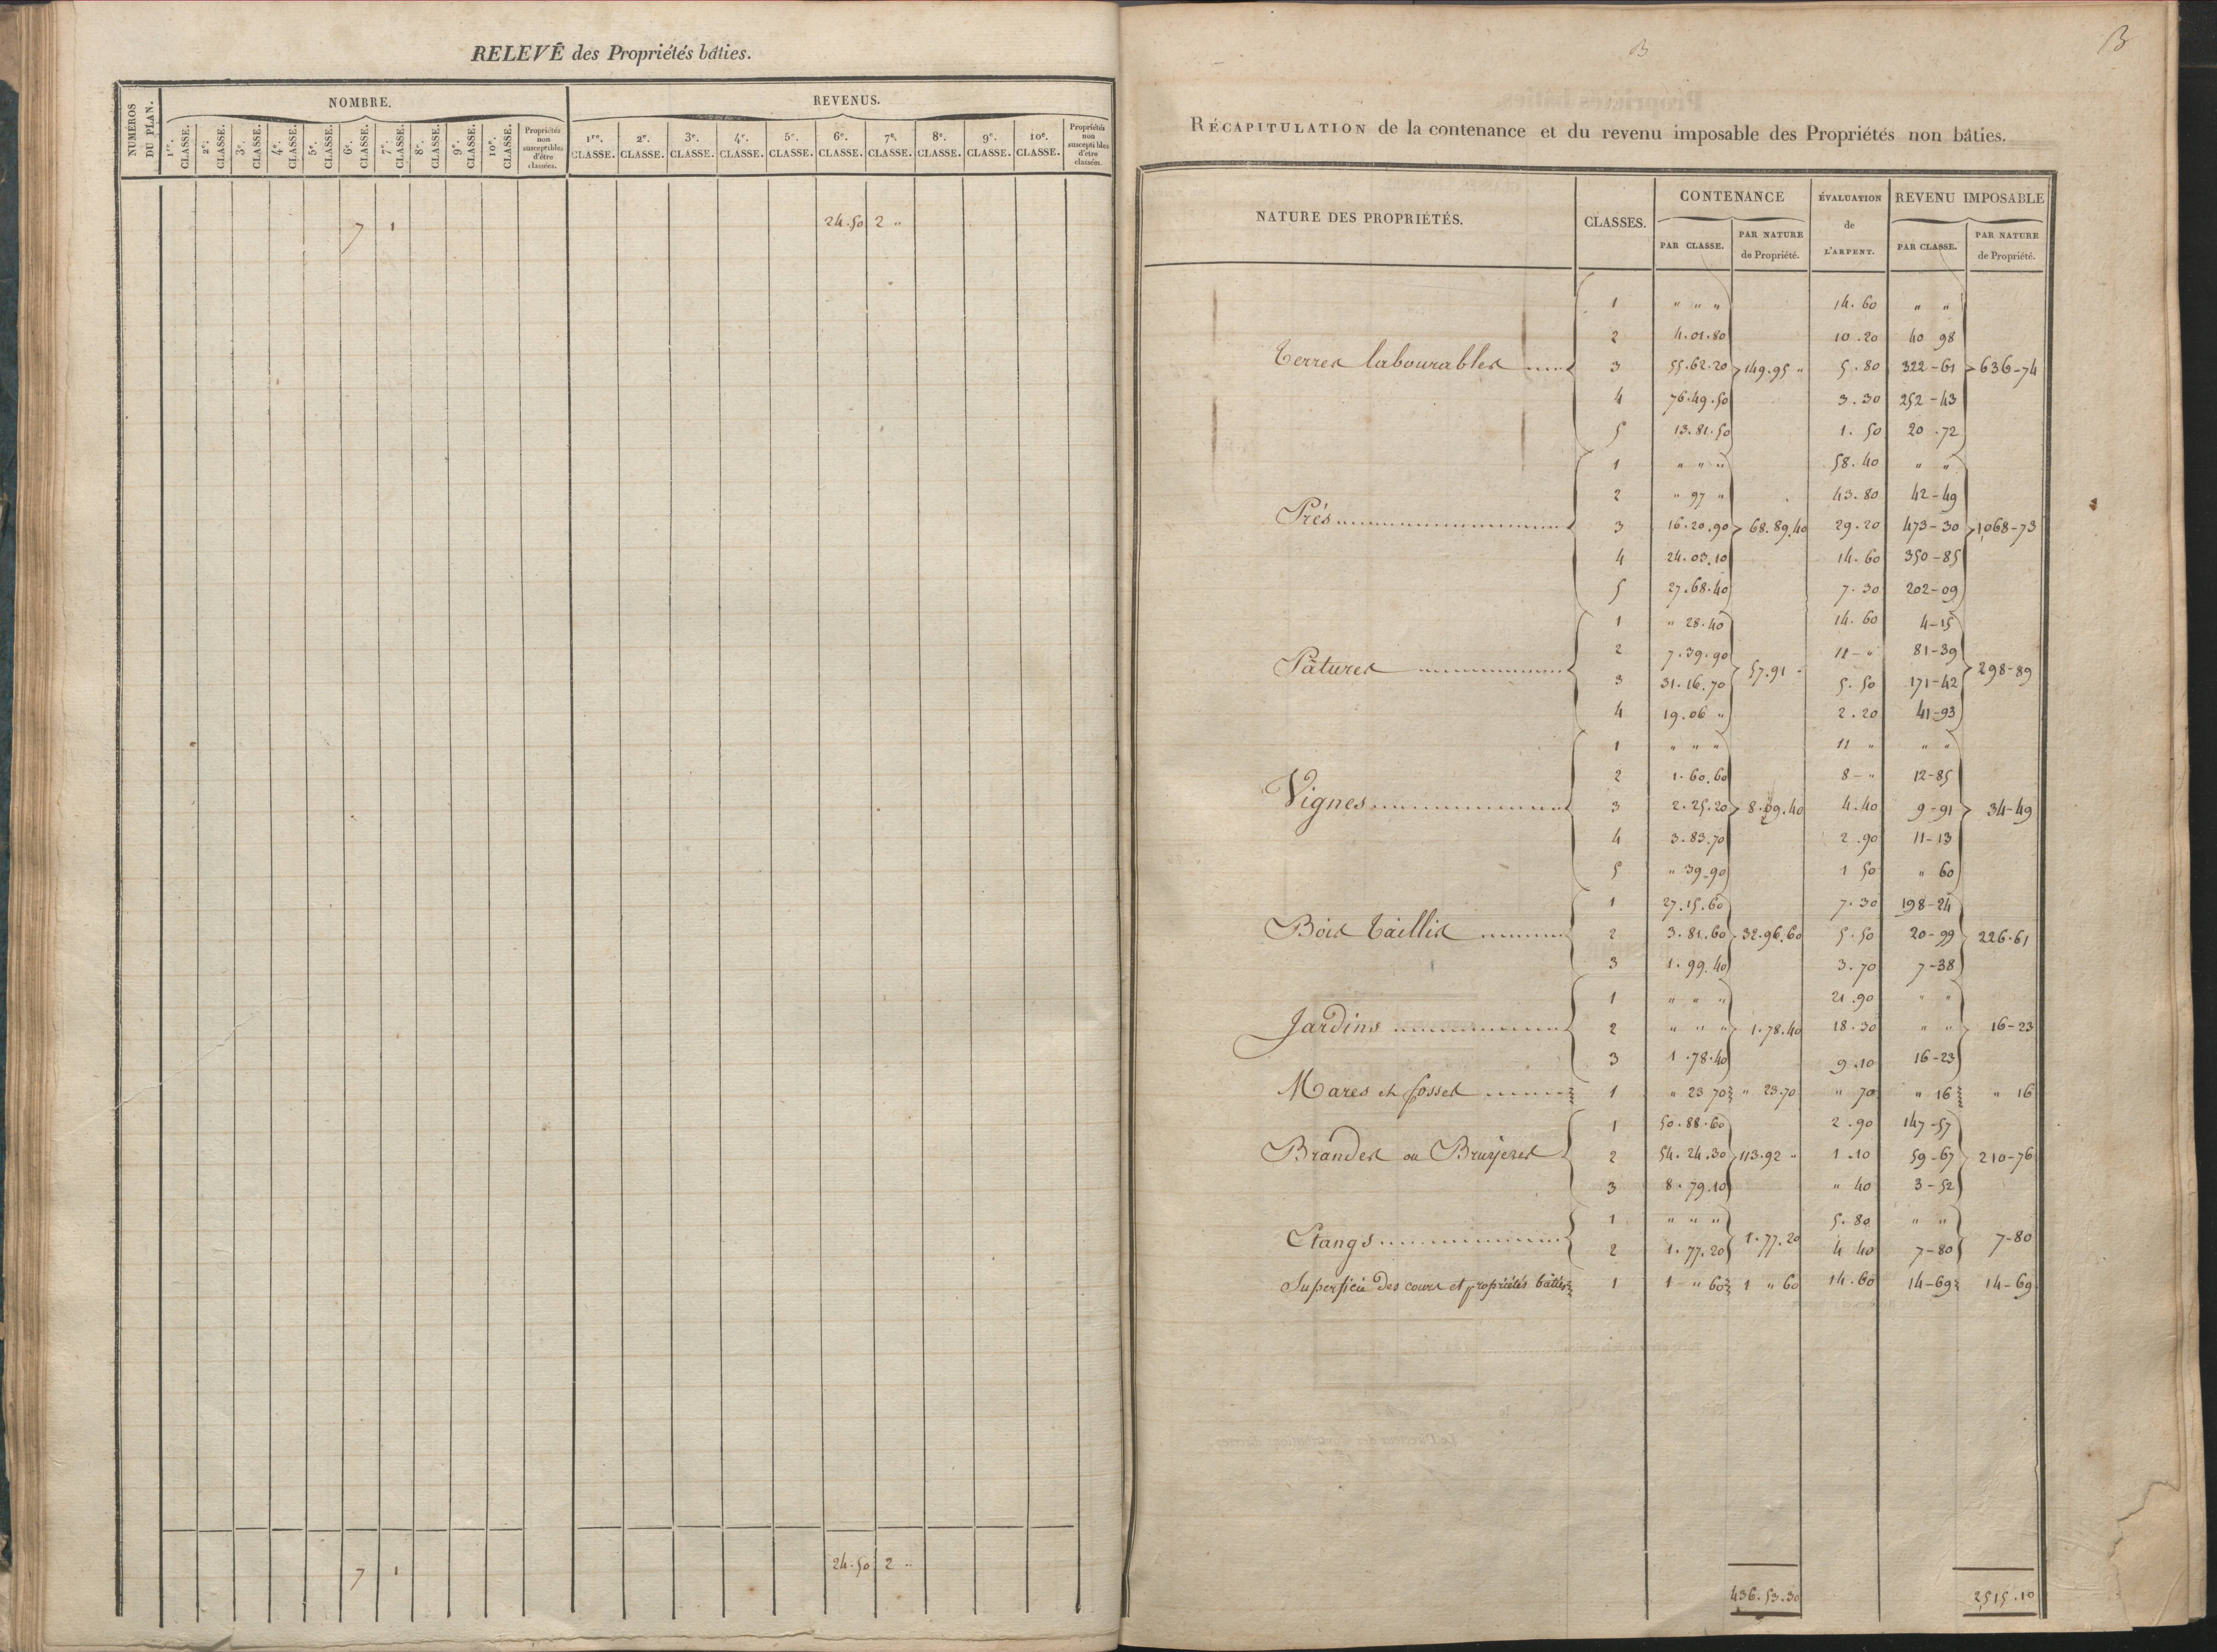 RELEVÉ des Propriétés bâties.
NUMÉROS DU PLAN. NOMBRE. REVENUS.
1re. CLASSE. 2e. CLASSE. 3e. CLASSE. 4e. CLASSE. 5e. CLASSE. 6e. CLASSE. 7e. CLASSE. 8e. CLASSE. 9e. CLASSE. 10e. CLASSE. Propriétés non susceptibles d'être classées. 1re. CLASSE. 2e. CLASSE. 3e. CLASSE. 4e. CLASSE. 5e. CLASSE. 6e. CLASSE. 7e. CLASSE. 8e. CLASSE. 9e. CLASSE. 10e. CLASSE. Propriétés non susceptibles d'être classées.
7 1 24.50 2 "
7 1 24.50 2 "
B B
RÉCAPITULATION de la contenance et du revenu imposable des Propriétés non bâties.
NATURE DES PROPRIÉTÉS. CLASSES. CONTENANCE ÉVALUATION de L'ARPENT. REVENU IMPOSABLE
PAR CLASSE. PAR NATURE de Propriété. PAR CLASSE. PAR NATURE de Propriété.
1 " " " 14.60 " "
2 4.01.80 10.20 40 98
Terres labourables 3 55.62.20 149.95 " 5.80 322-61 636-74
4 76.49.50 3.30 252-43
5 13.81.50 1.50 20.72
1 " " " 58.40 " "
2 " 97 " 43.80 42-49
Prés 3 16.20.90 68.89.40 29.20 473-30 1068-73
4 24.03.10 14.60 350-85
5 27.68.40 7.30 202-09
1 " 28.40 14.60 4-15
2 7.39.90 11-" 81-39
Pâtures 57.91 - 298-89
3 31.16.70 5.50 171-42
4 19.06 " 2.20 41-93
1 " " " 11 " " "
2 1.60.60 8-" 12-85
Vignes 3 2.25.20 8.09.40 4.40 9-91 34-49
4 3.83.70 2.90 11-13
5 " 39.90 1 50 " 60
1 27.15.60 7.30 198-24
Bois taillis 2 3.81.60 32.96.60 5.50 20-99 226.61
3 1.99.40 3.70 7-38
1 " " " 21.90 " "
Jardins 2 " " " 1.78.40 18.30 " " 16-23
3 1.78.40 9.10 16-23
Mares et fosses 1 " 23 70 " 23.70 " 70 " 16 " 16
1 50.88.60 2.90 147-57
Brandes ou Bruyeres 2 54.24.30 113.92 " 1.10 59-67 210-76
3 8.79.10 " 40 3-52
1 " " " 5.80 " "
Etangs 1.77.20 7-80
2 1.77.20 4 40 7-80
Superficie des cours et propriétés bâties 1 1 " 60 1 " 60 14.60 14-69 14-69
436.53.30 2515.10